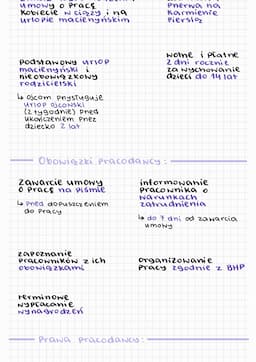 umowy o pracę
kobiecie w ciąży i na
urlopie macierzyńskim
przerwa na
karmienie
piersią
podstawowy urlop
macierzyński i
nieobowiązkowy
rodzicielski
↳ ojcom przysługuje
urlop ojcowski
(2 tygodnie) przed
ukończeniem przez
dziecko 2 lat
wolne i płatne
2 dni rocznie
za wychowanie
dzieci do 14 lat
Obowiązki pracodawcy:
zawarcie umowy
o pracę na piśmie
↳ przed dopuszczeniem
do pracy
informowanie
pracownika o
warunkach
zatrudnienia
↳ do 7 dni od zawarcia
umowy
zapoznanie
pracowników z ich
obowiązkami
organizowanie
pracy zgodnie z BHP
terminowe
wypłacanie
wynagrodzeń
Prawa pracodawcy: